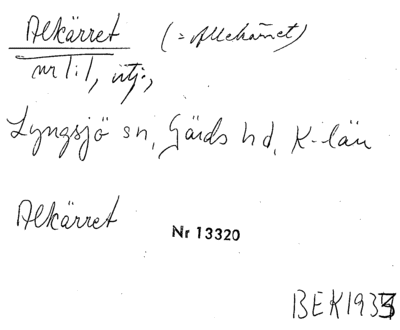 Alkärret (= Allekärret)
nr 1:1, utj.,
Lyngsjö sn, Gärds hd, K-län
Alkärret
Nr 13320
BEK 1933